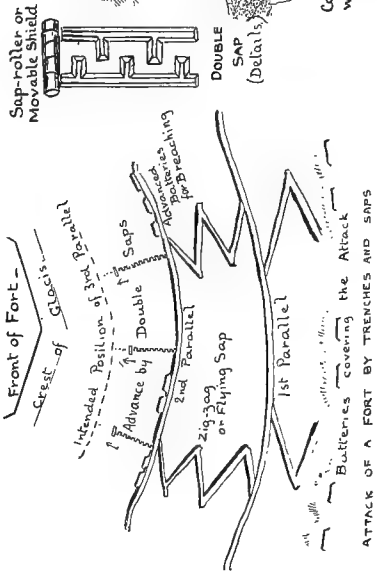 Front of Fort
Crest of Glacis
Intended Position of 3rd Parallel
Advance by Double Saps
Advanced
Batteries
for Breaching
2nd Parallel
Zig-zag
or Flying Sap
1st Parallel
Batteries covering the Attack
ATTACK OF A FORT BY TRENCHES AND SAPS
Sap-roller or
Movable Shield
DOUBLE
SAP
(Details)